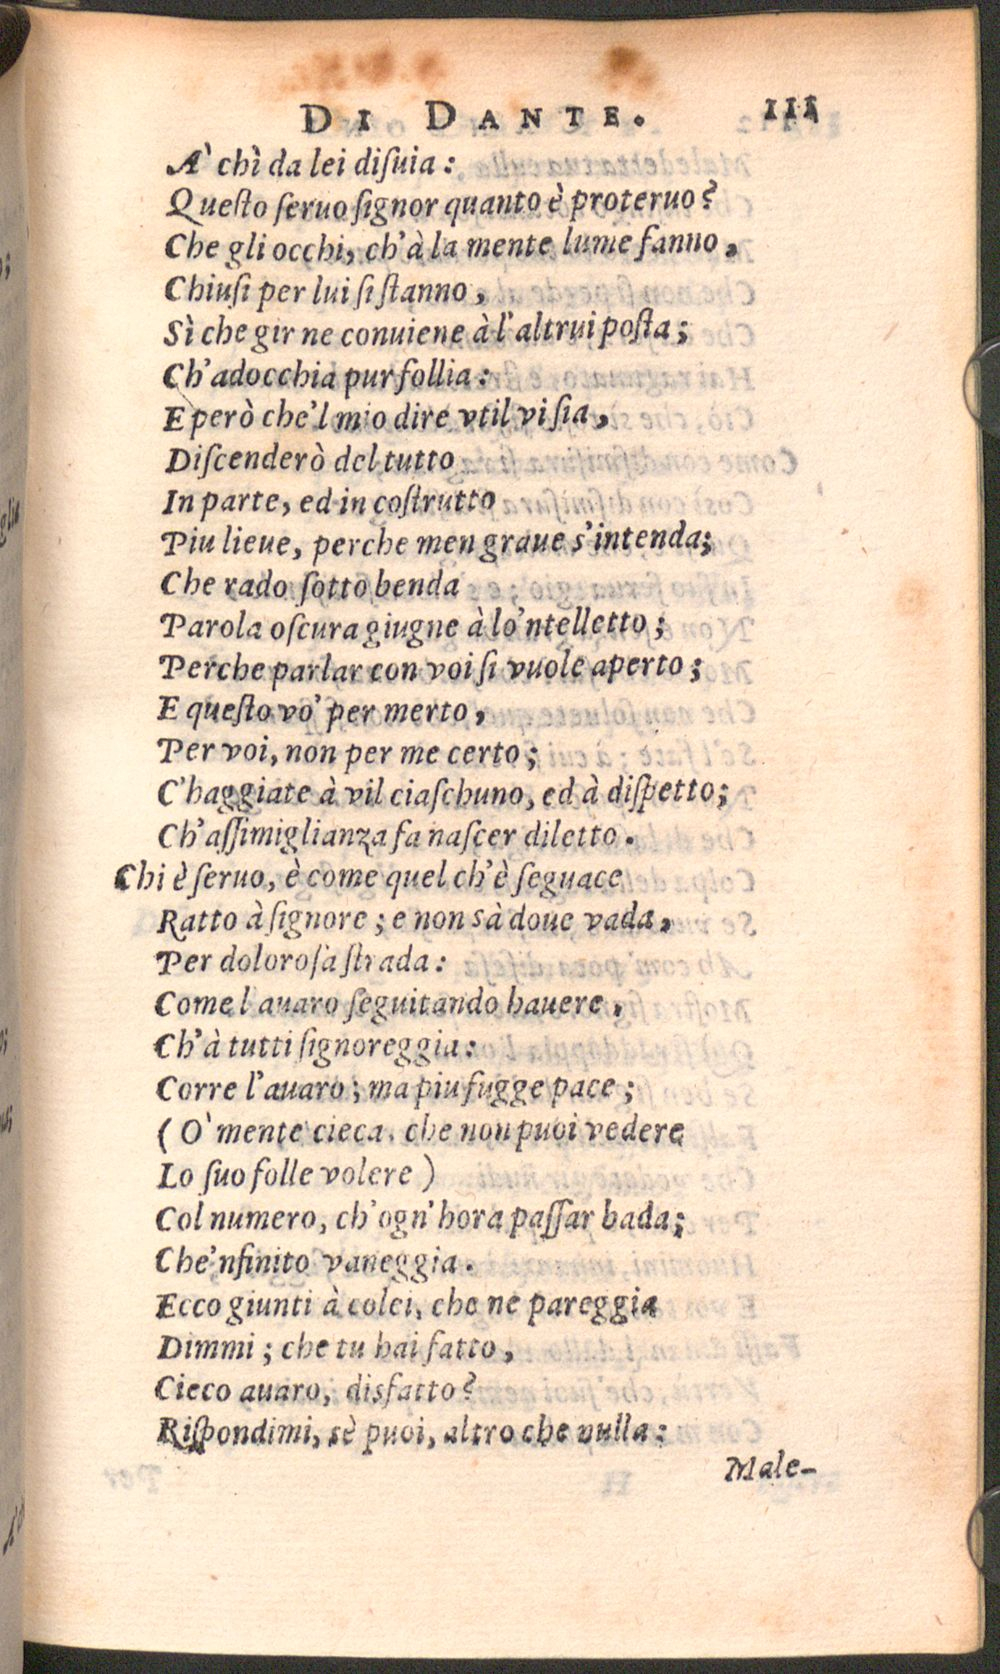 DI DANTE. 111
A' chì da lei diſuia:
Queſto ſeruo ſignor quanto è proteruo?
Che gli occhi, ch'à la mente lume fanno,
Chiuſi per lui ſi ſtanno,
Sì che gir ne conuiene à l'altrui poſta;
Ch'adocchia pur follia:
E però che'l mio dire vtil vi ſia,
Diſcenderò del tutto
In parte, ed in coſtrutto
Piu lieue, perche men graue s'intenda;
Che rado ſotto benda
Parola oſcura giugne à lo'ntelletto;
Perche parlar con voi ſi vuole aperto;
E queſto vo' per merto,
Per voi, non per me certo;
C'haggiate à vil ciaſchuno, ed à diſpetto;
Ch'aſſimiglianza fa naſcer diletto.
Chi è ſeruo, è come quel ch'è ſeguace
Ratto à ſignore; e non sà doue vada,
Per doloroſa ſtrada:
Come l auaro ſeguitando hauere,
Ch'à tutti ſignoreggia:
Corre l'auaro; ma piu fugge pace;
(O' mente cieca, che non puoi vedere
Lo ſuo folle volere)
Col numero, ch'ogn'hora paſſar bada;
Che'nfinito vaneggia.
Ecco giunti à colei, che ne pareggia
Dimmi; che tu hai fatto,
Cieco auaro, disfatto?
Riſpondimi, sè puoi, altro che nulla:
Male-